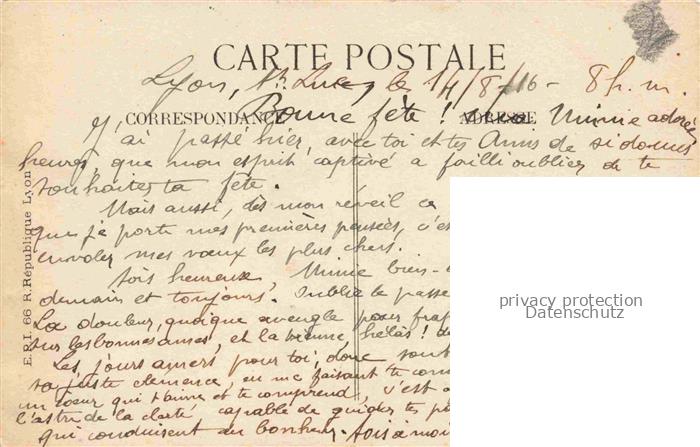 CARTE POSTALE
Lyon, St Luc, le 14/8/16 - 8 h. m.
CORRESPONDANCE ADRESSE
Bonne fête ! Mimie adorée
J'ai passé hier, avec toi et tes Amis de si douces
heures, que mon esprit captivé a failli oublier de te
souhaiter ta fête.
Mais aussi, dès mon réveil ce
que je porte mes premières pensées, c'es
envoler mes vœux les plus chers.
Sois heureuse, Mimie bien-
demain et toujours. Oublie le passé
La douleur, quoique aveugle pour frap
sur les bonnes âmes, et la tienne, hélas ! de
Les jours amers pour toi, donc sont
ta juste clémence, en me faisant te con
un cœur qui t'aime et te comprend, c'est
l'astre de la clarté capable de guider tes p
qui conduisent au bonheur. Sois à moi
E.R.I. 66 R. République Lyon
privacy protection
Datenschutz